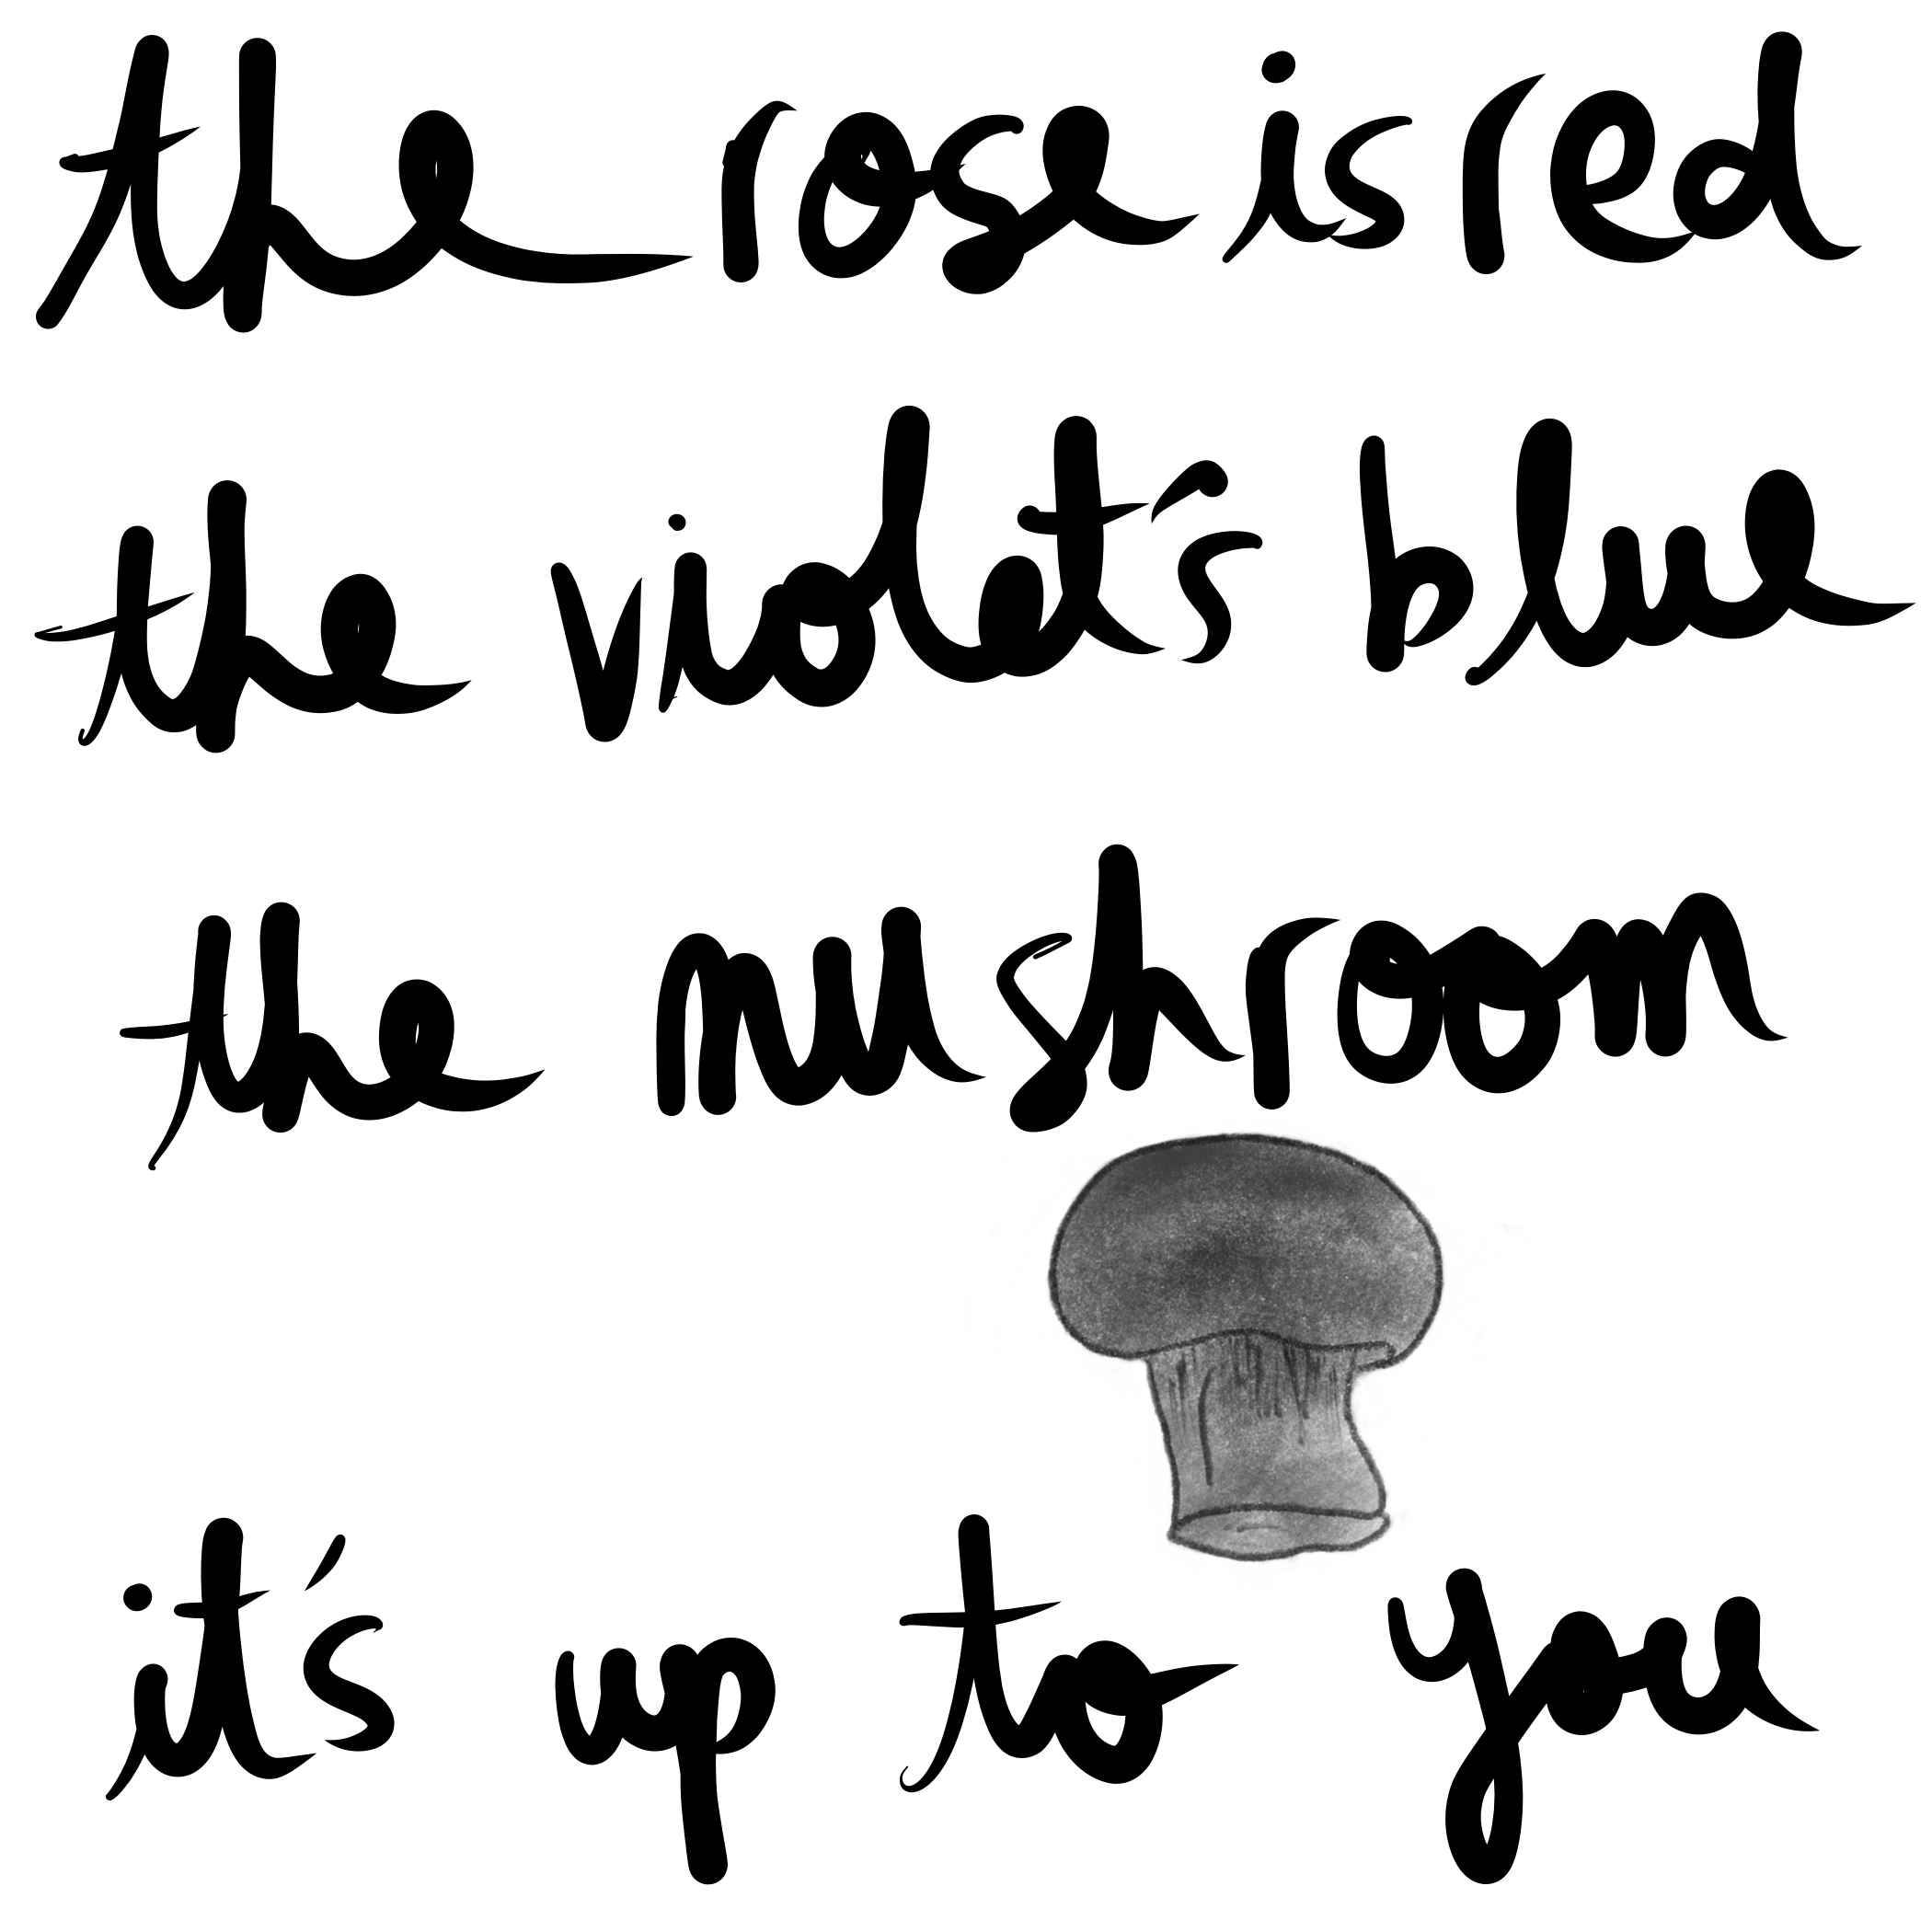 the rose is red
the violet's blue
the mushroom
it's up to you